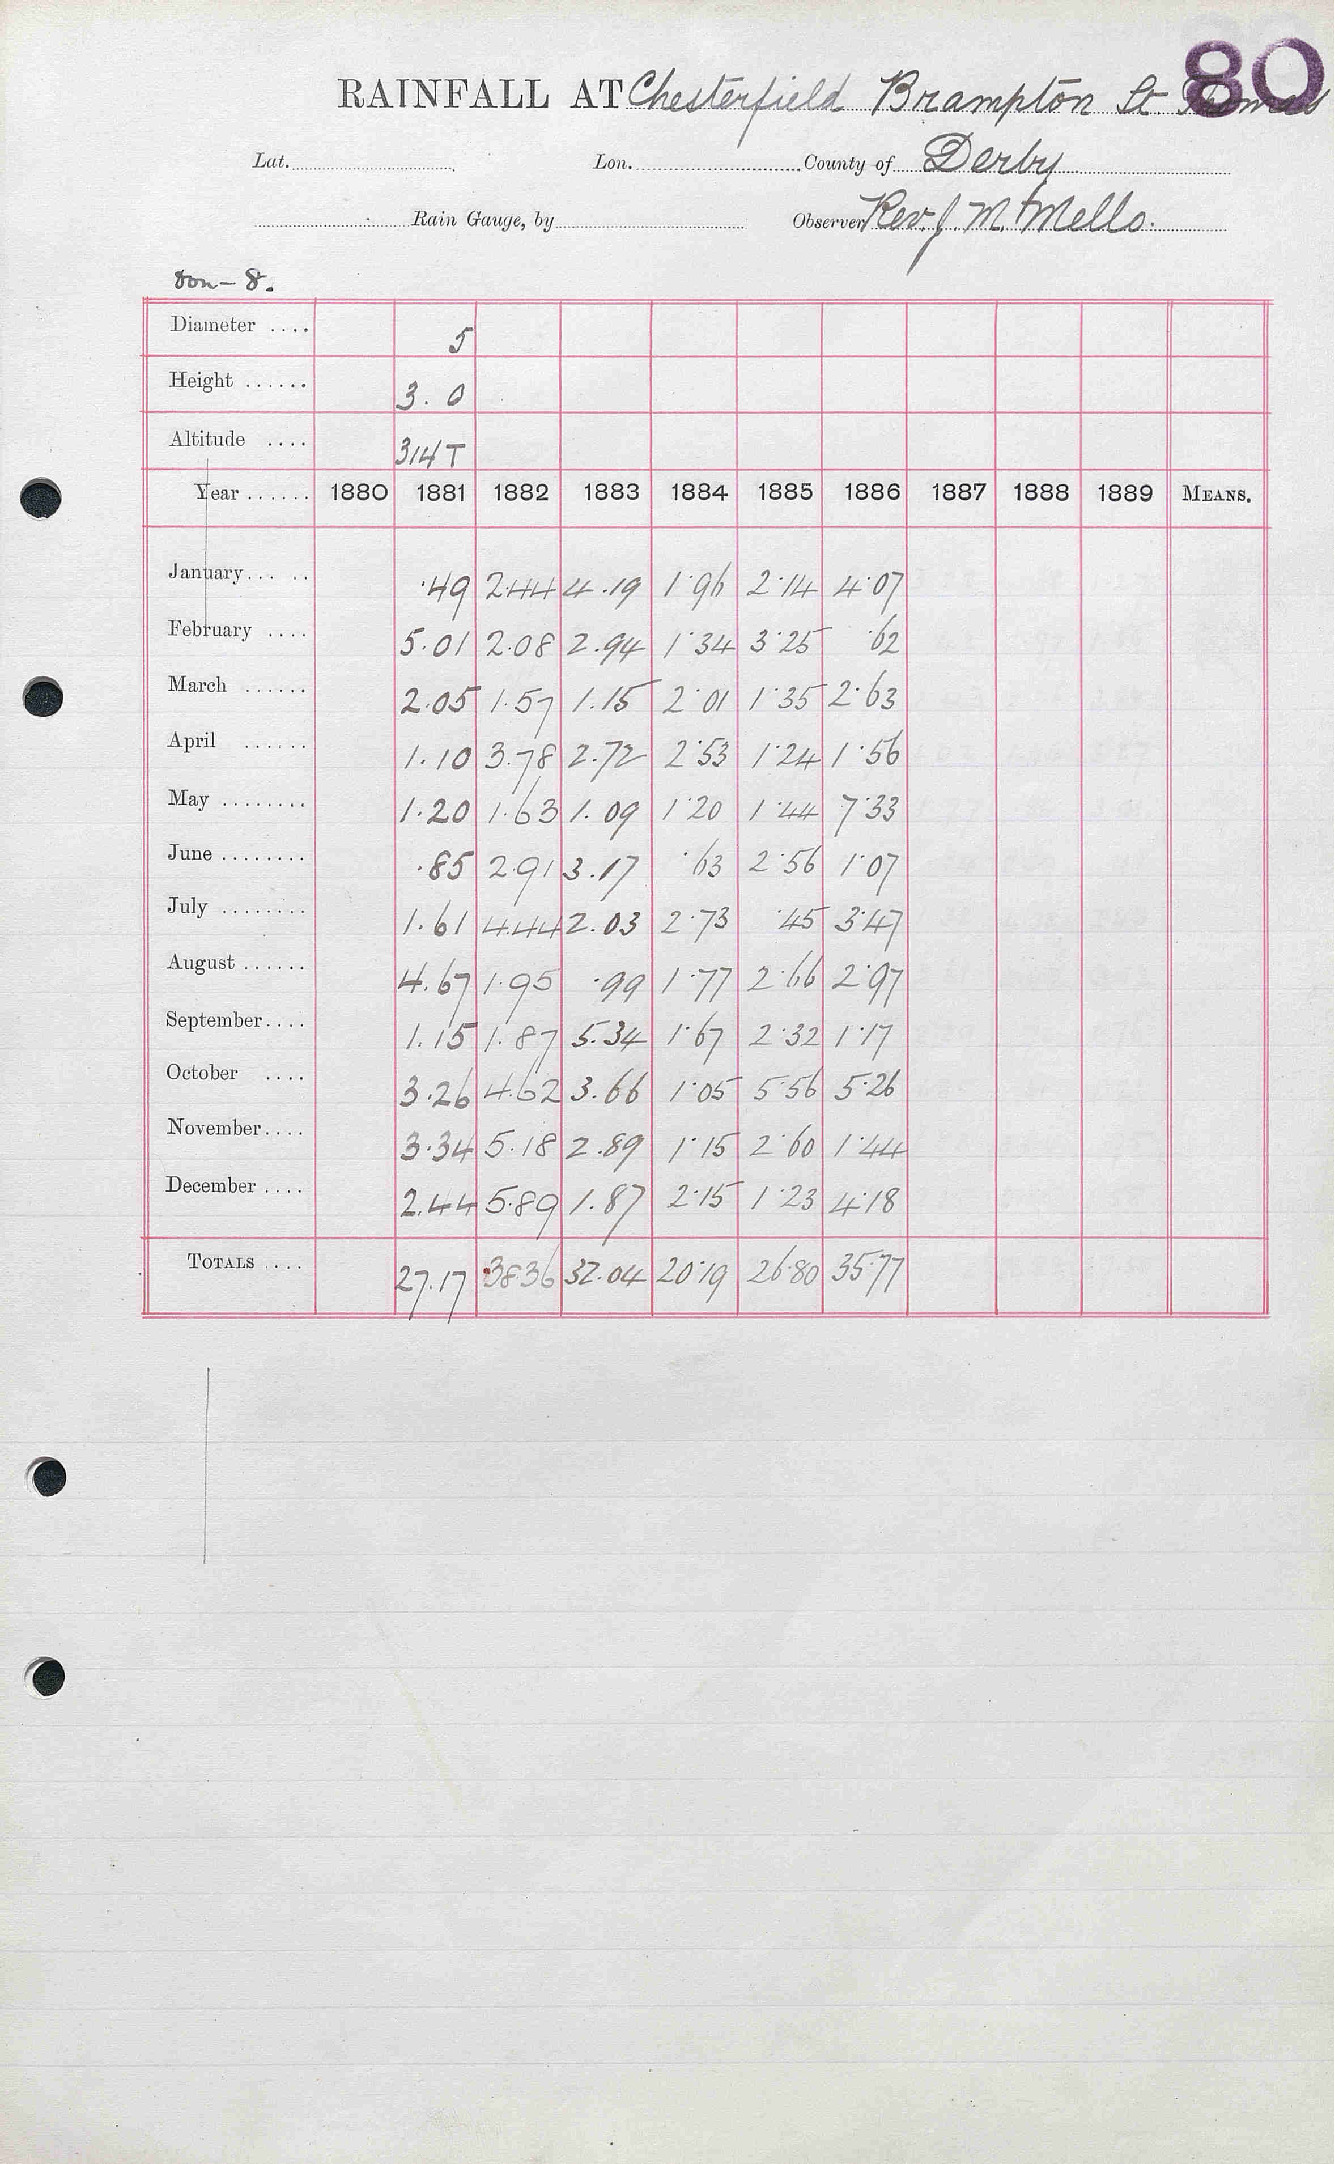 80
RAINFALL AT Chesterfield Brampton St. Thomas
Lat. Lon. County of Derby
Rain Gauge, by Observer Rev. J. M. Mello.
Don - 8.
Diameter .... 5
Height ...... 3. 0
Altitude .... 314 T
Year ...... 1880 1881 1882 1883 1884 1885 1886 1887 1888 1889 MEANS.
January... .. .49 2.44 4.19 1.96 2.14 4.07
February .... 5.01 2.08 2.94 1.34 3.25 .62
March ...... 2.05 1.57 1.15 2.01 1.35 2.63
April ...... 1.10 3.78 2.72 2.53 1.24 1.56
May ........ 1.20 1.63 1.09 1.20 1.44 7.33
June ........ .85 2.91 3.17 .63 2.56 1.07
July ........ 1.61 4.44 2.03 2.73 .45 3.47
August ...... 4.67 1.95 .99 1.77 2.66 2.97
September.... 1.15 1.87 5.34 1.67 2.32 1.17
October .... 3.26 4.62 3.66 1.05 5.56 5.26
November.... 3.34 5.18 2.89 1.15 2.60 1.44
December .... 2.44 5.89 1.87 2.15 1.23 4.18
TOTALS .... 27.17 38.36 32.04 20.19 26.80 35.77